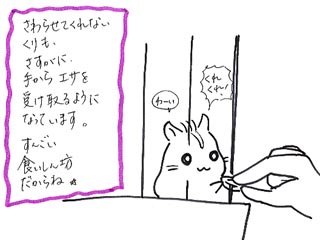 さわらせてくれない
くりも、
さすがに、
手から エサを
受け取るように
なっています。
すんごい
食いしん坊
だからね
わーい
くれ
くれ!